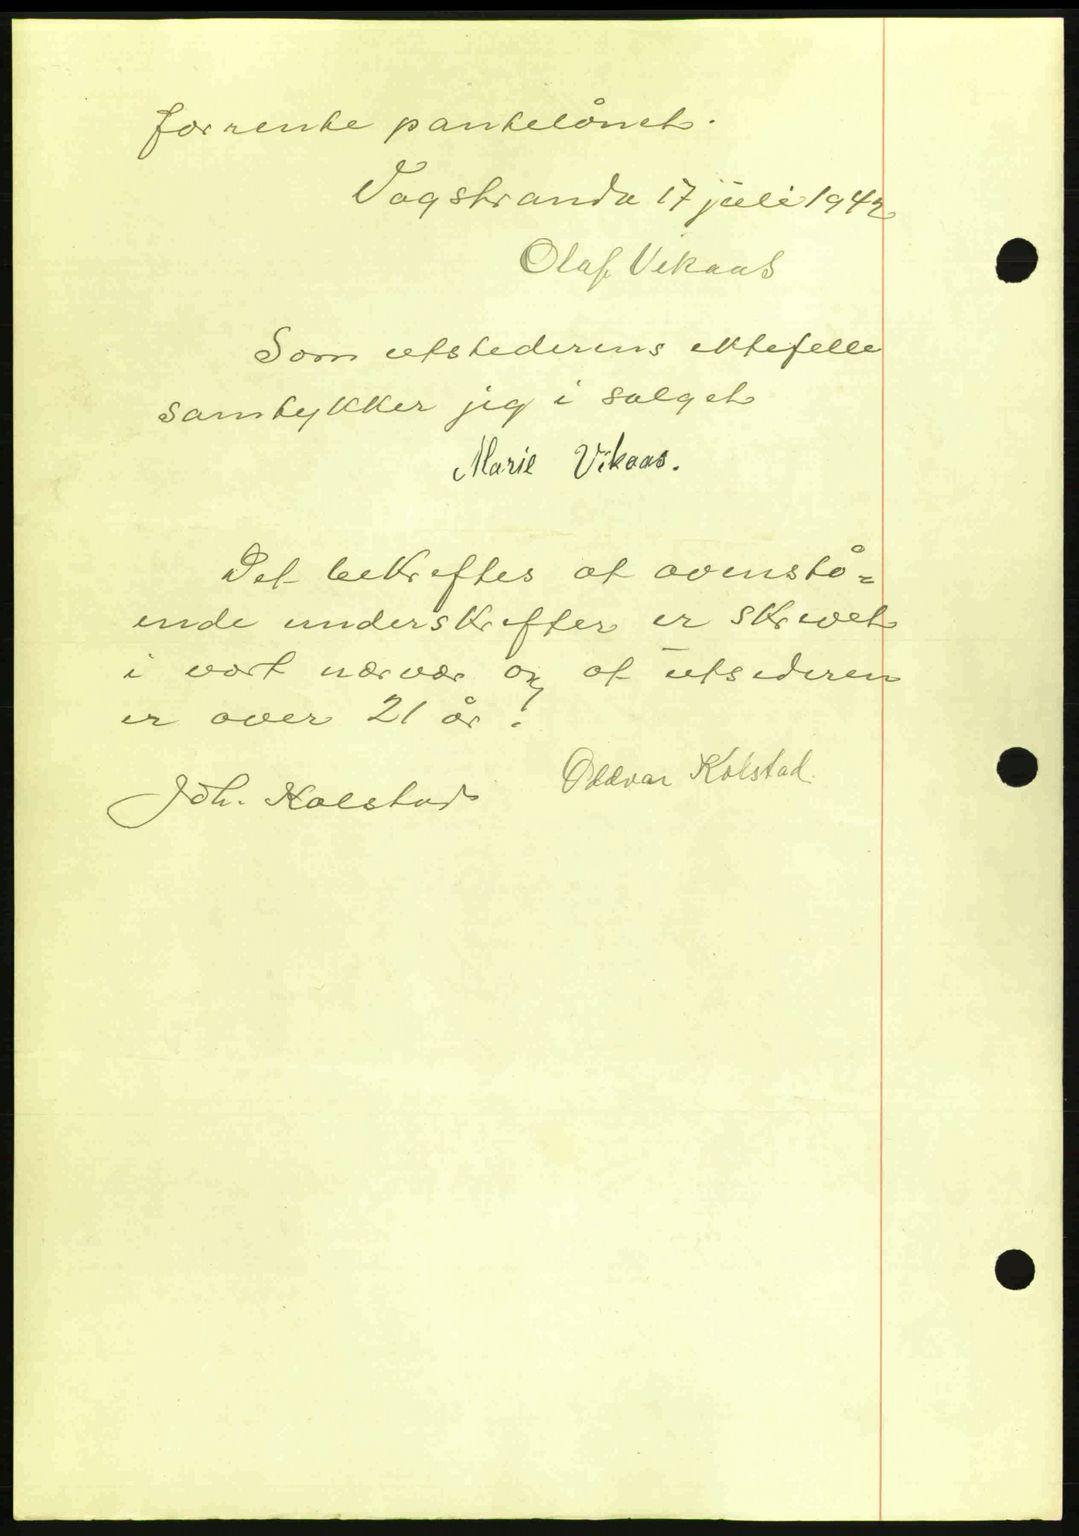 forrente pantelånet.
Vagstranda 17 juli 1942
Olaf Vikaas
Som utstederens ektefelle
samtykker jeg i salget
Marie Vikaas.
Det bekreftes at ovenstå=
ende underskrifter er skrevet
i vort nærvær og at utsederen
er over 21 år.
Joh. Kolstad Oddvar Kolstad.